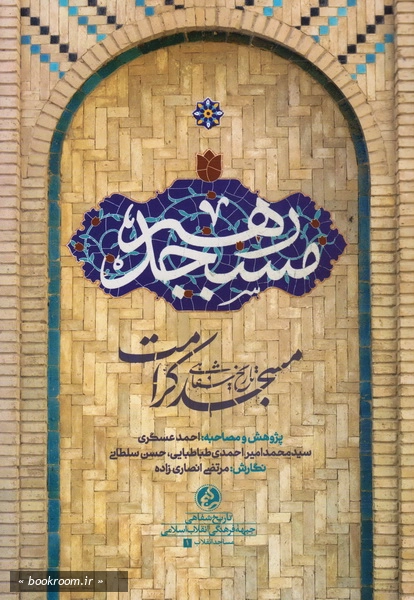 مسجد رهبر
تاریخ شفاهی
مسجد کرامت
پژوهش و مصاحبه: احمد عسگری
سیدمحمدامیر احمدی طباطبایی، حسن سلطانی
نگارش: مرتضی انصاری‌زاده
تاریخ شفاهی
جبهه فرهنگی انقلاب اسلامی
مساجد انقلاب ۱
« bookroom.ir »